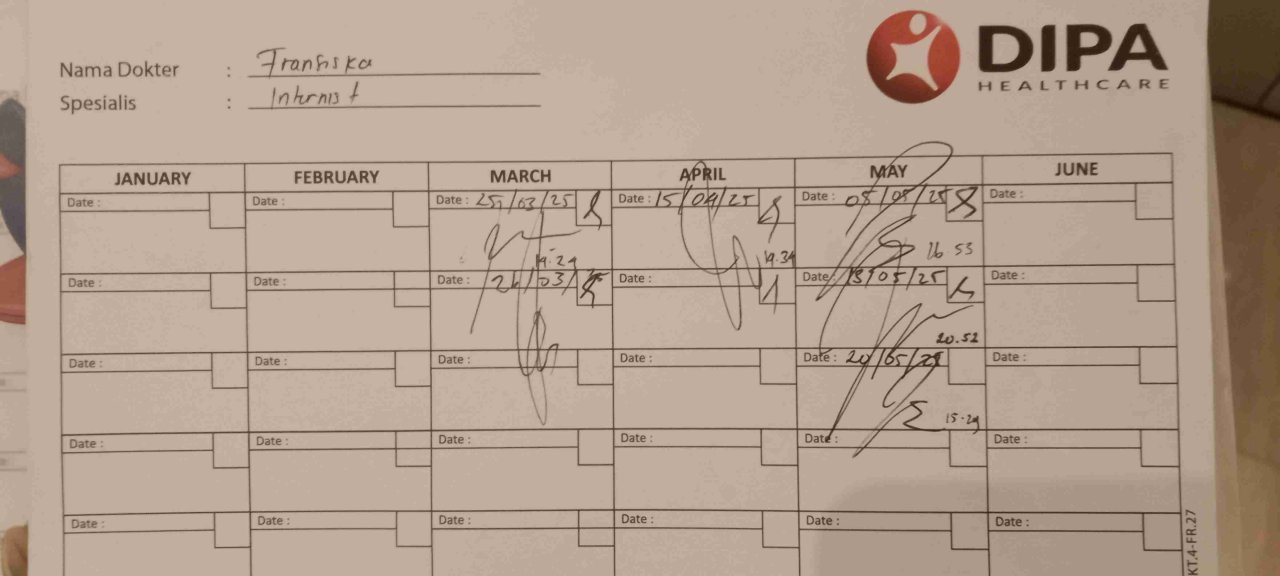 DIPA
HEALTHCARE
Nama Dokter : Fransiska
Spesialis : Internist
JANUARY FEBRUARY MARCH APRIL MAY JUNE
Date : Date : Date : 25/03/25 Date : 15/04/25 Date : 05/05/25 Date :
19.29 19.34 16 53
Date : Date : Date : 26/03/25 Date : Date : 13/05/25 Date :
20.52
Date : Date : Date : Date : Date : 20/05/25 Date :
15.29
Date : Date : Date : Date : Date : Date :
Date : Date : Date : Date : Date : Date :
KT.4-FR.27